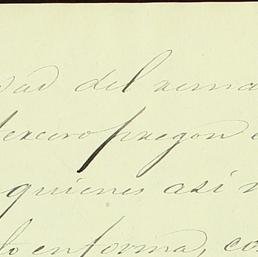 dad del rema
tercero pregon e
quienes asi
to en forma, co